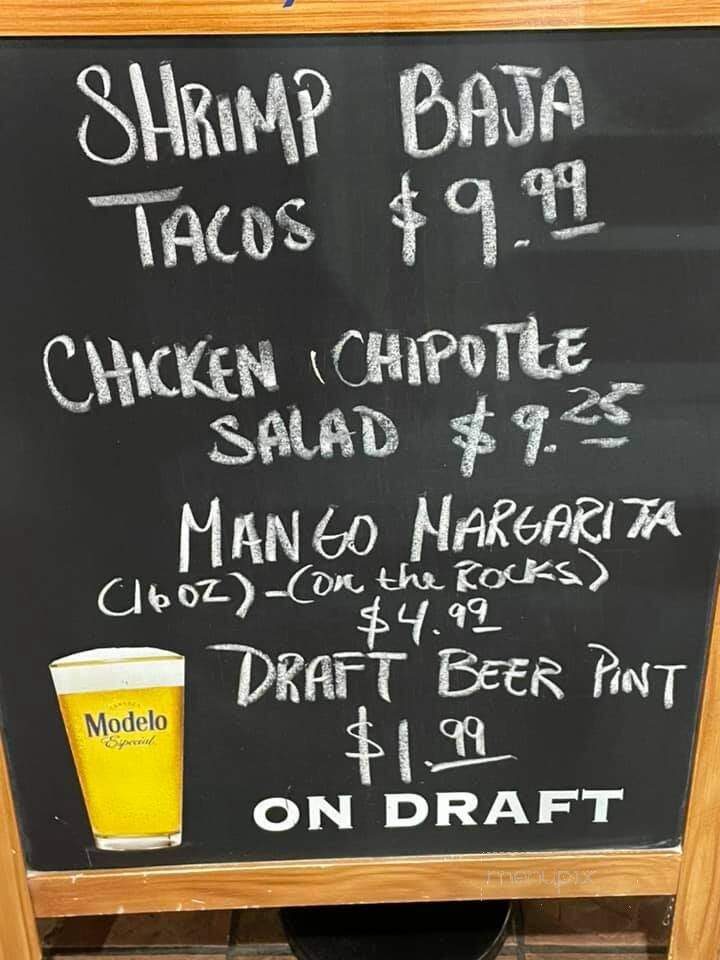 SHRIMP BAJA
TACOS $9.99
CHICKEN CHIPOTLE
SALAD $9.25
MANGO MARGARITA
(16oz)-(on the Rocks)
$4.99
DRAFT BEER PINT
$1.99
Modelo
Especial
ON DRAFT
menupix